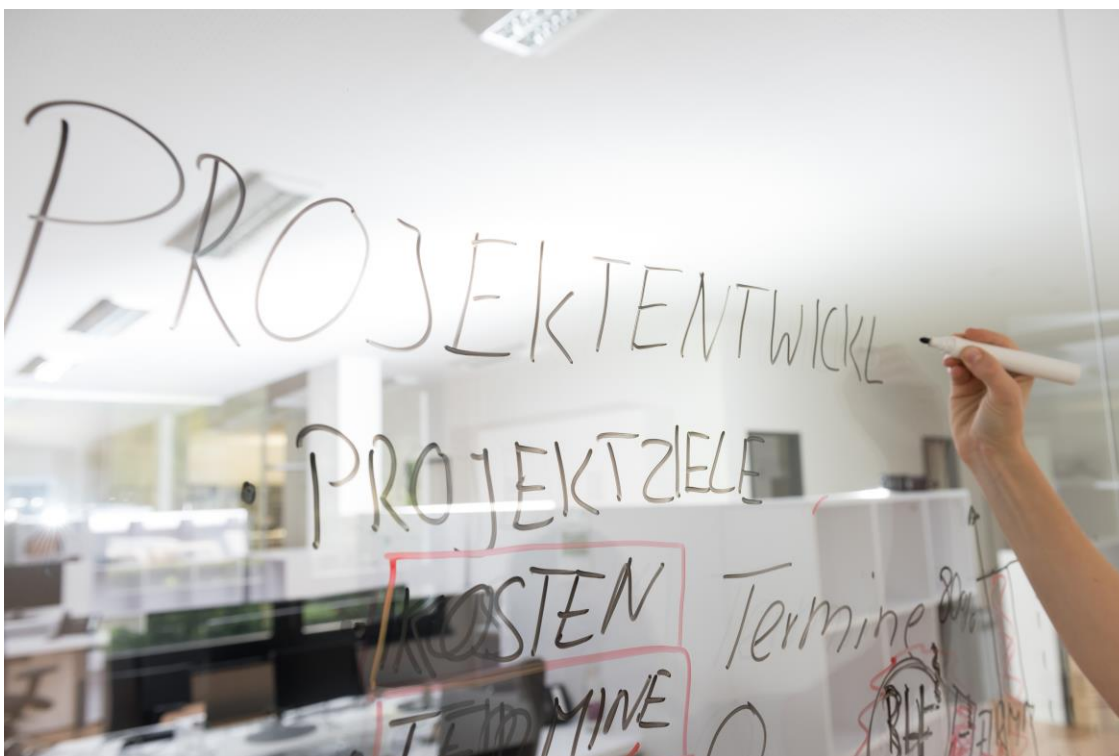 PROJEKTENTWICKL
PROJEKTZIELE
KOSTEN Termine
TERMINE